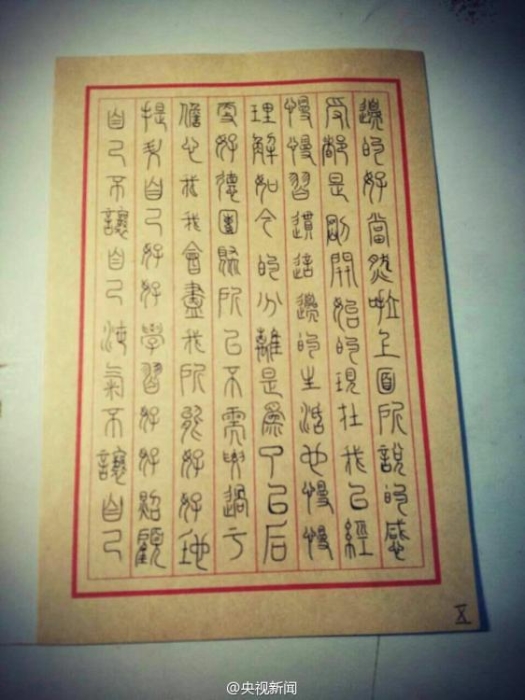 邊的好當然啦上面所說的感
受都是剛開始的現在我已經
慢慢習慣這邊的生活也慢慢
理解如今的分離是為了以后
更好德團聚所以不需要過于
擔心我我會盡我所能好好地
提升自己好好學習好好照顧
自己不讓自己氣不讓自己
@央视新闻